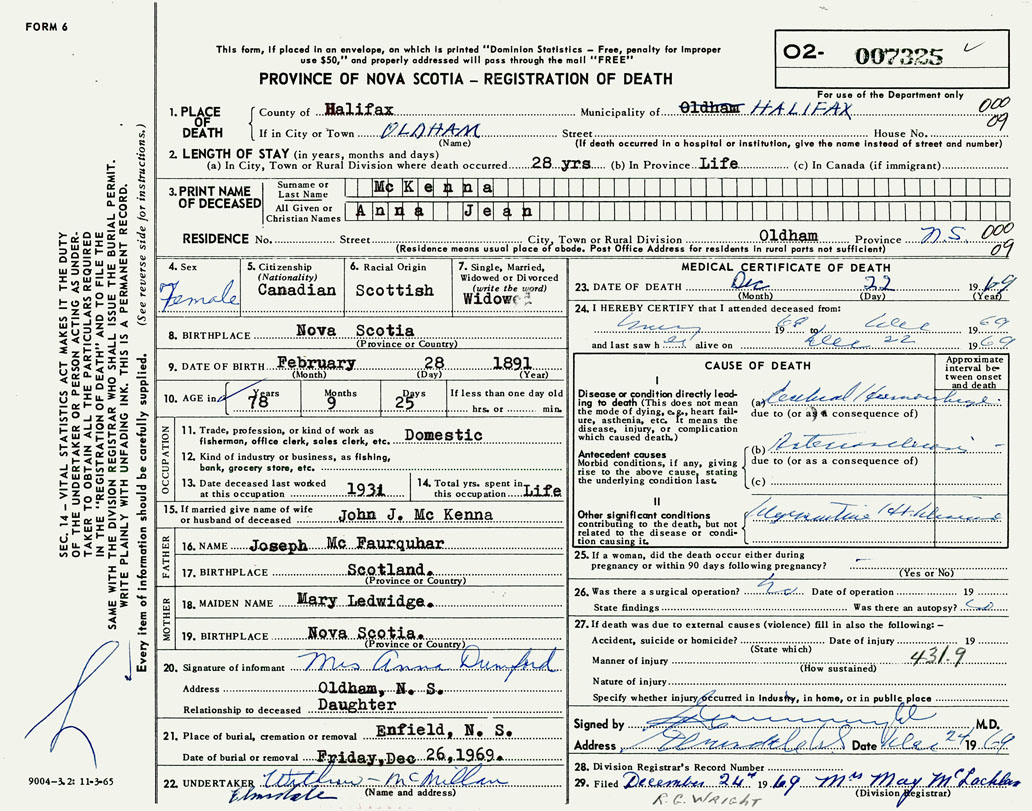 FORM 6
This form, if placed in an envelope, on which is printed "Dominion Statistics – Free, penalty for improper
use $50," and properly addressed will pass through the mail "FREE"
PROVINCE OF NOVA SCOTIA – REGISTRATION OF DEATH
O2- 007325
For use of the Department only
1. PLACE OF DEATH
County of Halifax Municipality of Oldham HALIFAX 000
If in City or Town OLDHAM Street House No. 09
(Name) (If death occurred in a hospital or institution, give the name instead of street and number)
2. LENGTH OF STAY (in years, months and days)
(a) In City, Town or Rural Division where death occurred 28 yrs (b) In Province Life (c) In Canada (if immigrant)
3. PRINT NAME OF DECEASED
Surname or Last Name McKenna
All Given or Christian Names Anna Jean
RESIDENCE No. Street City, Town or Rural Division Oldham Province N.S. 000
(Residence means usual place of abode. Post Office Address for residents in rural parts not sufficient) 09
4. Sex
Female
5. Citizenship
(Nationality)
Canadian
6. Racial Origin
Scottish
7. Single, Married,
Widowed or Divorced
(write the word)
Widowed
8. BIRTHPLACE Nova Scotia
(Province or Country)
9. DATE OF BIRTH February 28 1891
(Month) (Day) (Year)
10. AGE in Years Months Days If less than one day old
78 9 25 hrs. or min.
OCCUPATION
11. Trade, profession, or kind of work as
fisherman, office clerk, sales clerk, etc. Domestic
12. Kind of industry or business, as fishing,
bank, grocery store, etc.
13. Date deceased last worked
at this occupation 1931
14. Total yrs. spent in
this occupation Life
15. If married give name of wife
or husband of deceased John J. Mc Kenna
FATHER
16. NAME Joseph Mc Faurquhar
17. BIRTHPLACE Scotland.
(Province or Country)
MOTHER
18. MAIDEN NAME Mary Ledwidge.
19. BIRTHPLACE Nova Scotia.
(Province or Country)
20. Signature of informant Mrs Anna Dumford
Address Oldham, N. S.
Relationship to deceased Daughter
21. Place of burial, cremation or removal Enfield, N. S.
Date of burial or removal Friday, Dec 26, 1969.
22. UNDERTAKER McMillan
Elmsdale (Name and address)
MEDICAL CERTIFICATE OF DEATH
23. DATE OF DEATH Dec 22 1969
(Month) (Day) (Year)
24. I HEREBY CERTIFY that I attended deceased from:
1968 to Dec 1969
and last saw her alive on Dec 22 1969
CAUSE OF DEATH
Approximate
interval be-
tween onset
and death
I
Disease or condition directly lead-
ing to death (This does not mean
the mode of dying, e.g., heart fail-
ure, asthenia, etc. It means the
disease, injury, or complication
which caused death.)
(a) Cerebral Hemorrhage
due to (or as a consequence of)
Antecedent causes
Morbid conditions, if any, giving
rise to the above cause, stating
the underlying condition last.
(b) Arteriosclerosis
due to (or as a consequence of)
(c)
II
Other significant conditions
contributing to the death, but not
related to the disease or condi-
tion causing it.
Hypertensive Ht Disease
25. If a woman, did the death occur either during
pregnancy or within 90 days following pregnancy?
(Yes or No)
26. Was there a surgical operation? No Date of operation 19
State findings Was there an autopsy? No
27. If death was due to external causes (violence) fill in also the following: –
Accident, suicide or homicide? Date of injury 19
(State which)
Manner of injury 431.9
(How sustained)
Nature of injury
Specify whether injury occurred in Industry, in home, or in public place
Signed by M.D.
Address Date Dec 24 1969
28. Division Registrar's Record Number
29. Filed December 24th 1969 Mrs May McLachlan
(Division Registrar)
R.C. WRIGHT
SEC. 14 – VITAL STATISTICS ACT MAKES IT THE DUTY
OF THE UNDERTAKER OR PERSON ACTING AS UNDER-
TAKER TO OBTAIN ALL THE PARTICULARS REQUIRED
IN THE "REGISTRATION OF DEATH" AND TO FILE THE
SAME WITH THE DIVISION REGISTRAR WHO SHALL ISSUE THE BURIAL PERMIT.
WRITE PLAINLY WITH UNFADING INK. THIS IS A PERMANENT RECORD.
Every item of information should be carefully supplied. (See reverse side for instructions.)
9004-3.2: 11-3-65